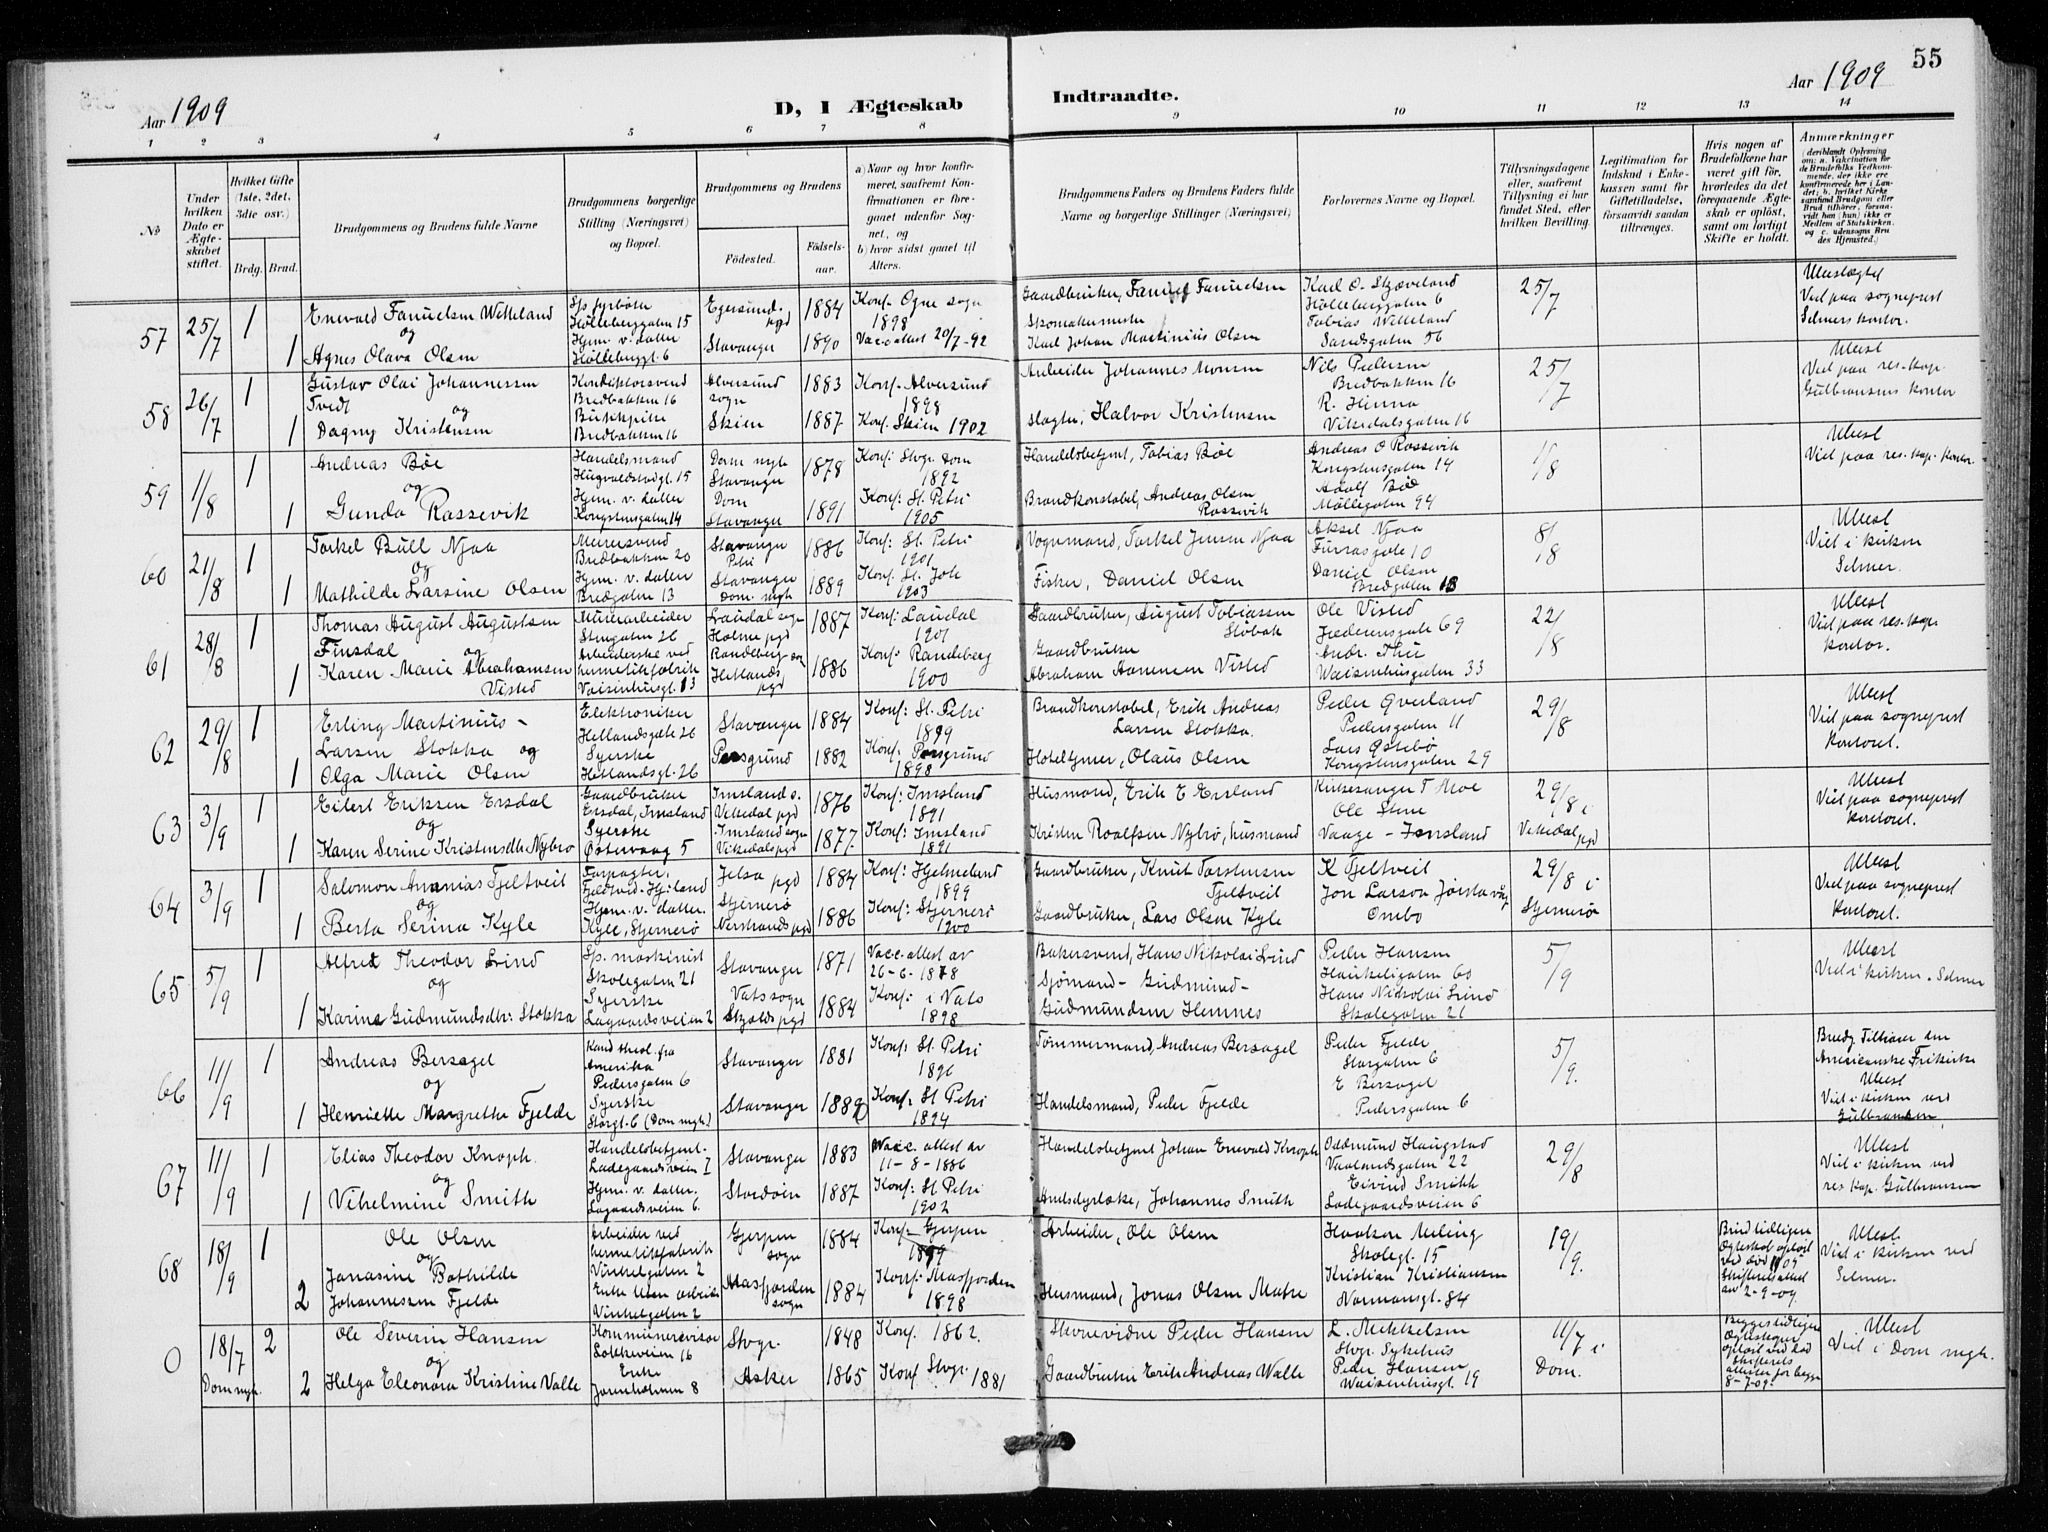 55
Aar 1909
Aar 1909
D, I Ægteskab Indtraadte.
1 2 3 4 5 6 7 8 9 10 11 12 13 14
No
Under hvilken Dato er Ægteskabet stiftet.
Hvilket Gifte (1ste, 2det, 3die osv.)
Brdg. Brud.
Brudgommens og Brudens fulde Navne
Brudgommens borgerlige Stilling (Næringsvei) og Bopæl.
Brudgommens og Brudens
Fødested. Fødselsaar.
a) Naar og hvor konfirmeret, saafremt Konfirmationen er foregaaet udenfor Sognet, og
b) hvor sidst gaaet til Alters.
Brudgommens Faders og Brudens Faders fulde Navne og borgerlige Stillinger (Næringsvei)
Forlovernes Navne og Bopæl.
Tillysningsdagene eller, saafremt Tillysning ei har fundet Sted, efter hvilken Bevilling.
Legitimation for Indskud i Enkekassen samt for Giftetilladelse, forsaavidt saadan tiltrænges.
Hvis nogen af Brudefolkene har været gift før, hvorledes da det foregaaende Ægteskab er opløst, samt om lovligt Skifte er holdt.
Anmærkninger
(deriblandt Oplysning om: a. Vakcination for de Brudefolks Vedkommende, der ikke ere konfirmerede her i Landet; b. hvilket Kirkesamfund Brudgom eller Brud tilhører, forsaavidt ham (hun) ikke er Medlem af Statskirken, og c. udensogns Brudes Hjemsted.)
57 25/7 1 Enevald Fanuelsen Wetteland
og
1 Agnes Olava Olsen
Sp. fyrbøter
Hölleberggaten 15
Hjem. v. datter
Hölleberggt. 6
Egersund pgd 1884
Stavanger 1890
Konf. Ogne sogn
1898
Vacc. attest 20/7-92
Gaardbruker, Fanuel Fanuelsen
Skomakermester
Karl Johan Martinius Olsen
Karl O. Skjæveland
Hölleberggaten 6
Tobias Wetteland
Sandsgaten 56
25/7
Ubeslægtet
Viet paa sogneprest
Selmers kontor.
58 26/7 1 Gustav Olai Johannessen
Tvedt
og
1 Dagny Kristensen
Konditorsvend
Bredbakken 16
Bredbakken 16
Alversund
sogn 1883
Skien 1887
Konf. Alversund
1898
Konf. Skien 1902
Arbeider Johannes Monsen
Slagter, Halvor Kristensen
Nils Pedersen
Bredbakken 16
R. Hinna
Vikedalsgaten 16
25/7
Ubesl
Viet paa res. kap.
Gulbransens kontor
59 1/8 1 Andreas Bøe
og
1 Gunda Rossevik
Handelsmand
Hjem. v. datter
Kongstensgaten 14
Dom mgh
Stavanger 1878
Dom
Stavanger 1891
Konf: Stvgr Dom
1892
Konf: St. Petri
1905
Handelsbetjent, Tobias Bøe
Brandkonstabel, Andreas Olsen
Rossevik
Andreas O Rossevik
Kongstensgaten 14
Adolf Bøe
Møllegaten 94
1/8
Ubesl
Viet paa res. kap. kontor.
60 21/8 1 Torkel Bull Njaa
og
1 Mathilde Larsine Olsen
Murersvend
Bredbakken 20
Hjem. v. datter
Bredgaten 13
Stavanger
Petri 1886
Stavanger
Dom. mgh 1889
Konf: St. Petri
1901
Konf: St. Joh
1903
Vognmand, Torkel Jensen Njaa
Fisker, Daniel Olsen
Aksel Njaa
Furrasgate 10
Daniel Olsen
Bredgaten 13
8/8
Ubesl
Viet i kirken
Selmer.
61 28/8 1 Thomas August Augustsen
Finsdal og
1 Karen Marie Abrahamsen
Visted
Murerarbeider
Stengaten 26
Arbeiderske ved
hermetikfabrik
Vaisenhusgt. 13
Laudal sogn
Holme pgd 1887
Randeberg sogn
Hetlands pgd 1886
Konf: Laudal
1901
Konf: Randeberg
1900
Gaardbruker, August Tobiassen
Gaardbruker
Abraham Aanensen Visted
Ole Visted
Jæderensgate 69
Andr. Thu
Waisenhusgaten 33
22/8
Ubesl
Viet paa res. kap.
kontor.
62 29/8 1 Erling Martinius -
Larsen Stokka og
1 Olga Marie Olsen
Elektroniker
Hetlandsgate 26
Syerske
Hetlandsgt. 26
Stavanger 1884
Porsgrund 1882
Konf: St. Petri
1899
Konf. Porsgrund
1898
Brandkonstabel, Erik Andreas
Larsen Stokka.
Hoteltjener, Olaus Olsen
Peder Gverland
Pedersgaten 11
Lars Østebø
Kongstensgaten 29
29/8
Ubesl
Viet paa sogneprest
kontoret.
63 3/9 1 Eilert Eriksen Ersdal
og
1 Karen Serine Kristensdtr Nybrø
Gaardbruker
Ersdal, Imsland
Syerske
Østervaag 5
Imsland s.
Vikedal pgd 1876
Imsland sogn
Vikedals pgd 1877.
Konf: Imsland
1891
Konf: Imsland
1891
Husmand, Erik E Ersland
Kristen Roalfsen Nybrø, husmand
Kirkesanger T Moe
Ole Stene
Vaage - Imsland
29/8 i
Vikedal pgd
Ubesl
Viet paa sogneprest
kontoret.
64 3/9 1 Salomon Ananias Fjeltveit
og
1 Berta Serina Kyle
Forpagter,
Hjem. v. datter.
Kyle, Stjernerø
Jelsa pgd 1884
Stjernerø
Nerstrands pgd 1886
Konf: Hjelmeland
1899
Konf: Stjernerø
1900
Gaardbruker, Knut Torstensen
Fjeltveit
Gaardbruker, Lars Olsen Kyle
K Fjeltveit
Jon Larsen Jørstavåg
Ombo
29/8 i
Stjernerø
Ubesl
Viet paa sogneprest
kontoret.
65 5/9 1 Alfred Theodor Lind
og
1 Karine Gudmundsdtr: Stokka
Sp. maskinist
Skolegaten 21
Syerske
Lagaardsveien 2
Stavanger 1871
Vats sogn
Skjolds pgd 1884
Vacc. attest av
26-6-1878
Konf: i Vats
1898
Bakersvend, Hans Nikolai Lind
Sjømand - Gudmund -
Gudmundsen Hemnes
Peder Hansen
Haukeligaten 60
Hans Nikolai Lind
Skolegaten 21
5/9
Ubesl
Viet i kirken. Selmer
66 11/9 1 Andreas Bersagel
og
1 Henriette Margrethe Fjelde
Kand. theol. fra
Amerika
Pedersgaten 6
Syerske
Storgt. 6 (Dom mgh)
Stavanger 1881
Stavanger
Konf: St. Petri
1896
Konf: St. Petri
1894
Tømmermand, Andreas Bersagel
Handelsmand, Peder Fjelde
Peder Fjelde
Storgaten 6
E Bersagel
Pedersgaten 6
5/9.
Brudg. Tilhører den
Amerikanske Frikirke
Ubesl
Viet i kirken ved
Gulbransen,
67 11/9 1 Elias Theodor Knoph.
og
1 Vilhelmine Smith
Handelsbetjent.
Ladegaardsveien 7
Hjem. v. datter.
Lagaardsveien 6.
Stavanger 1883
Stordøen 1887
Vacc. attest av
11-8-1886
Konf: St Petri
1902
Handelsbetjent Johan Enevald Knoph
Amtsdyrlæke, Johannes Smith
Oddmund Haugstad
Vaalandsgaten 22
Eivind Smith
Ladegaardsveien 6
29/8
Ubesl
Viet i kirken ved
res kap. Gulbransen
68 18/9 1 Ole Olsen
og
2 Jonasine Bothilde
Johannessen Fjelde
Arbeider ved
hermetikfabrik
Vinkelgaten 2
Vinkelgaten 2
Gjerpen
sogn 1884
Masfjorden
sogn 1884
Konf. Gjerpen
1899
Konf: Masfjorden
1898
Arbeider, Ole Olsen
Husmand, Jonas Olsen Matre
Haakon Meling
Skolegt. 15
Kristian Kristiansen
Normansgt. 84
19/9.
Brud tidligere
Ægteskab opløst
ved død
Skifteattest
av 2-9-09.
Ubesl
Viet i kirken ved
Selmer.
0 18/7
Dom mgh. 2 Ole Severin Hansen
og
2 Helga Eleonora Kristine Valle
Kommunerevisor
Løkkeveien 16
Enke
Jorenholmen 8
Stvgr. 1848
Asker 1865
Konf. 1862.
Konf Stvgr. 1881
Skrevidne Peder Hansen
Gaardbruker Erik Andreas Walle
L. Mikkelsen
Stvgr. Sykehus
Peder Hansen
Waisenhusgt. 19
11/7 i
Dom.
Begges tidligere
Ægteskaper
opløst ved død
Skifteattester for begge
8-7-09.
Ubesl
Viet i Dom mgh.